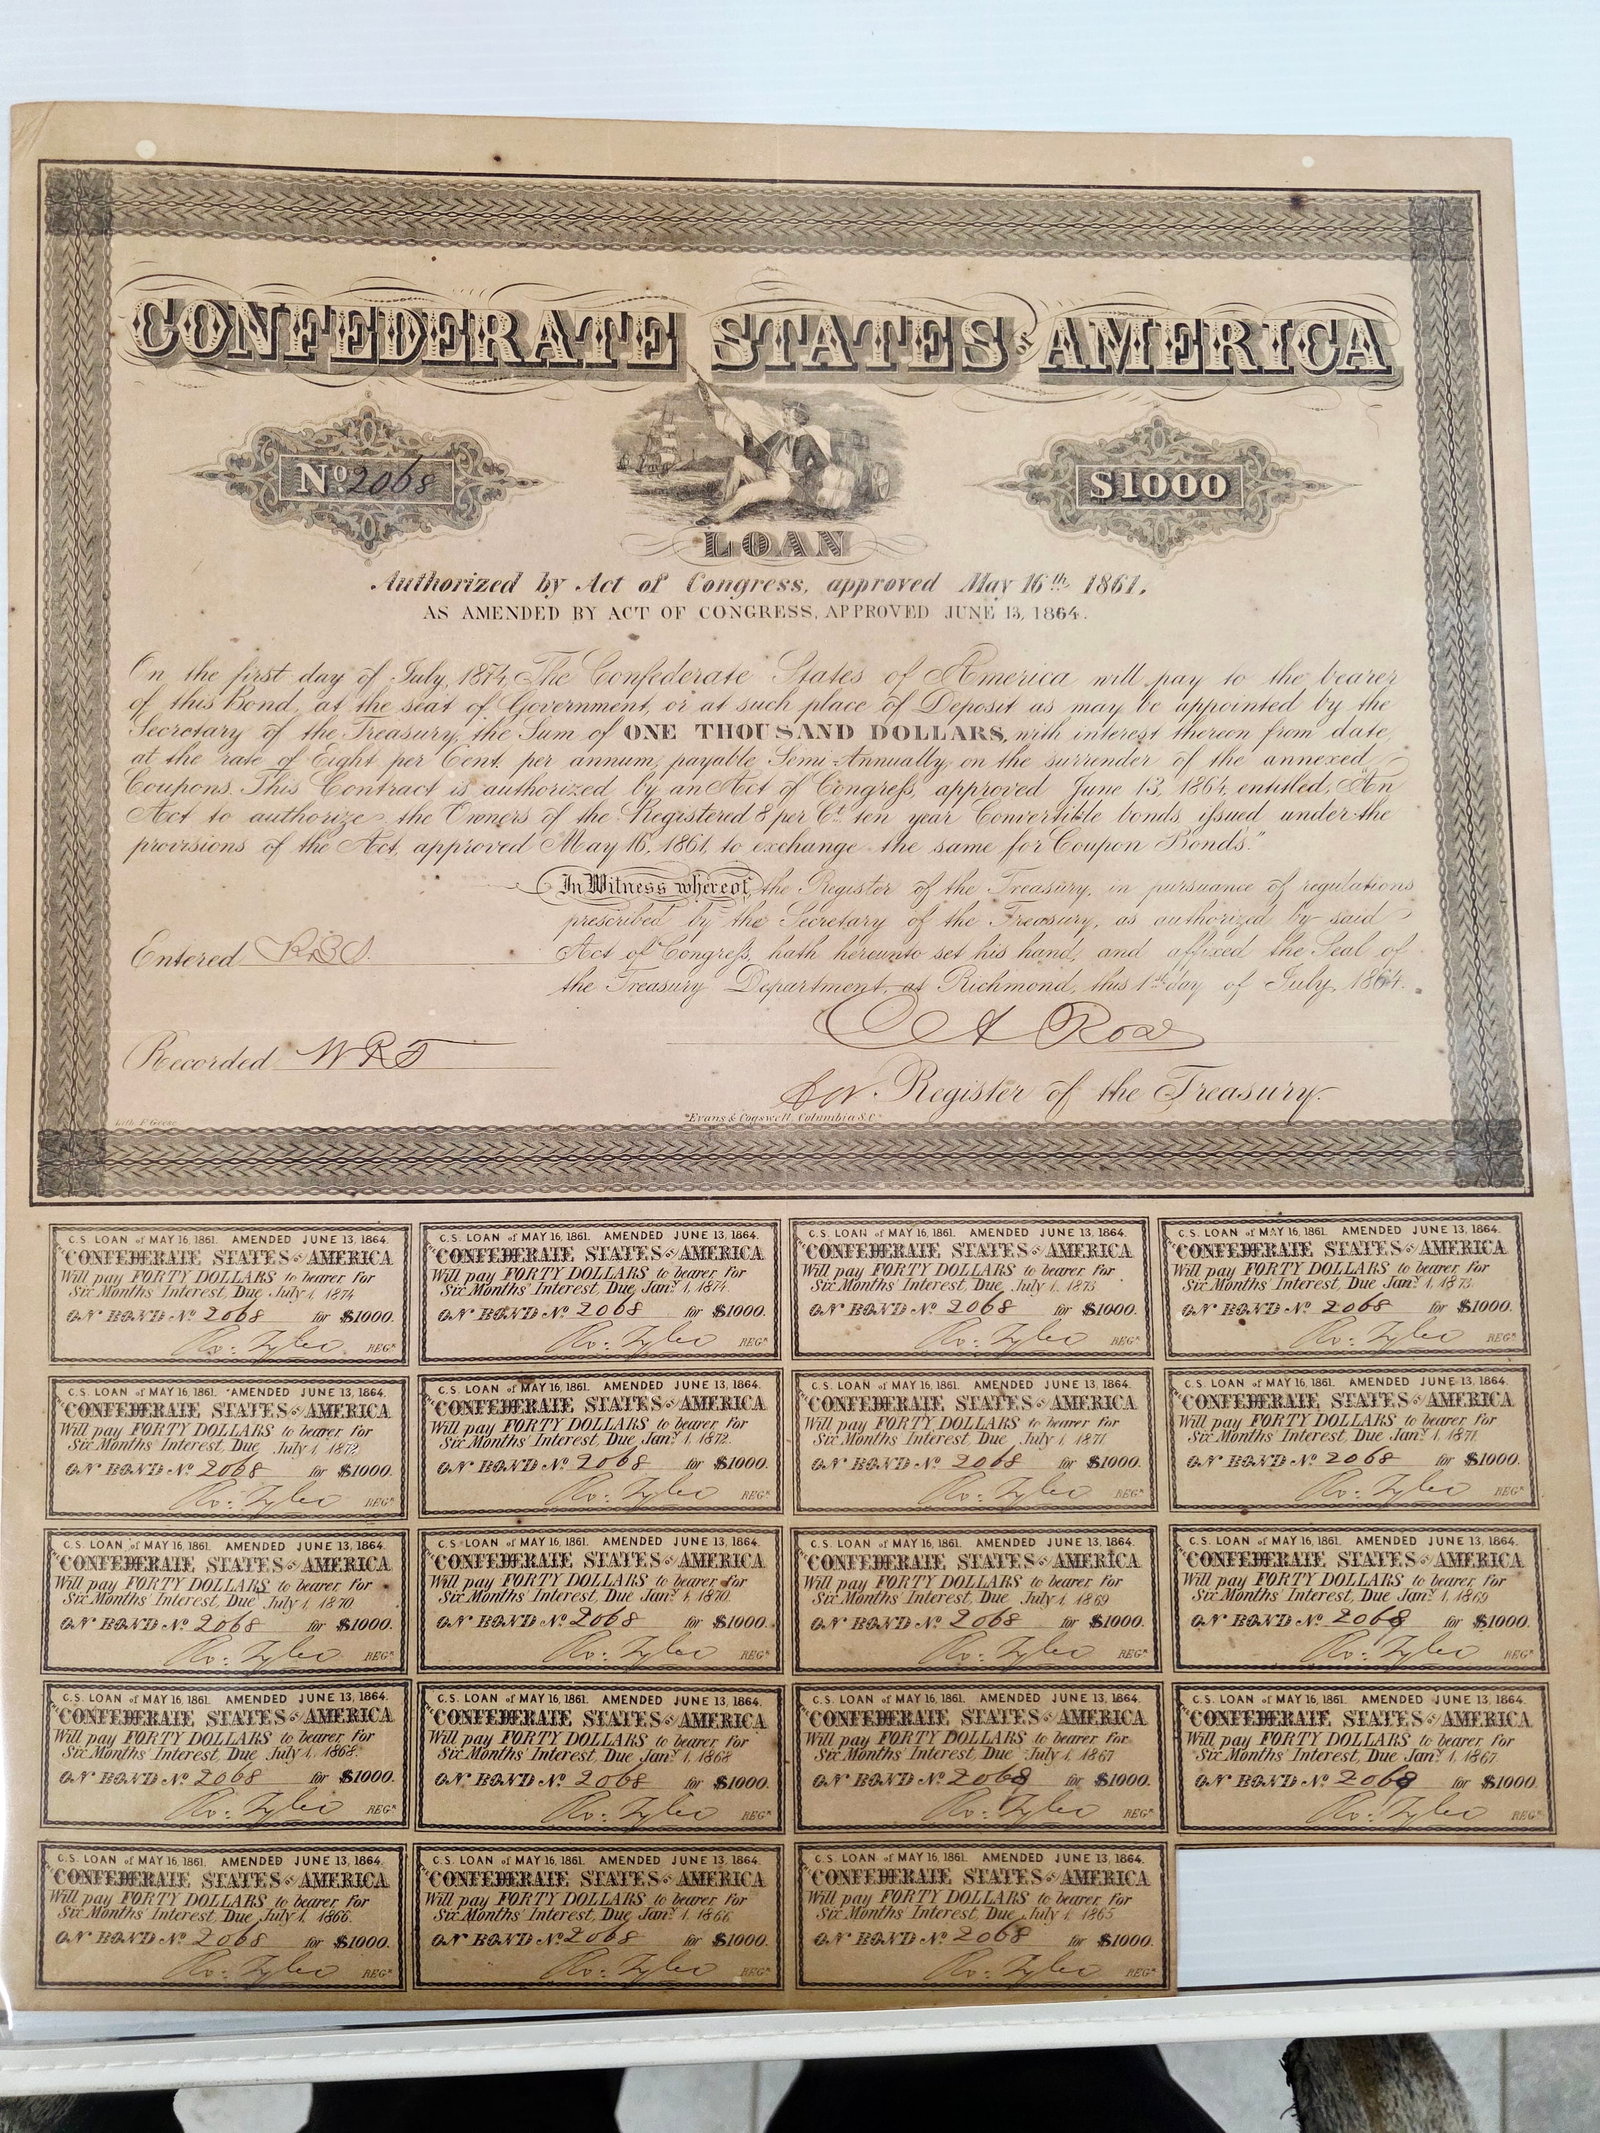 CONFEDERATE STATES OF AMERICA
No 2068
$1000
LOAN
Authorized by Act of Congress, approved May 16th 1861.
AS AMENDED BY ACT OF CONGRESS, APPROVED JUNE 13, 1864.
On the first day of July, 1874, The Confederate States of America will pay to the bearer
of this Bond, at the seat of Government, or at such place of Deposit as may be appointed by the
Secretary of the Treasury, the Sum of ONE THOUSAND DOLLARS, with interest thereon from date,
at the rate of Eight per Cent. per annum, payable Semi-Annually, on the surrender of the annexed
Coupons. This Contract is authorized by an Act of Congress, approved June 13, 1864, entitled, "An
Act to authorize the Owners of the Registered 8 per Ct. ten year Convertible bonds issued under the
provisions of the Act, approved May 16, 1861, to exchange the same for Coupon Bonds."
In Witness whereof, the Register of the Treasury, in pursuance of regulations
prescribed by the Secretary of the Treasury, as authorized by said
Act of Congress, hath hereunto set his hand, and affixed the Seal of
the Treasury Department, at Richmond, this 1st day of July, 1864.
Entered
Recorded WRT
C A Rose
for Register of the Treasury.
Evans & Cogswell, Columbia S.C.
C.S. LOAN of MAY 16, 1861. AMENDED JUNE 13, 1864.
THE CONFEDERATE STATES OF AMERICA
Will pay FORTY DOLLARS to bearer, for
Six Months' Interest, Due July 1, 1874
ON BOND No 2068 for $1000.
Ro: Tyler REGR
C.S. LOAN of MAY 16, 1861. AMENDED JUNE 13, 1864.
THE CONFEDERATE STATES OF AMERICA
Will pay FORTY DOLLARS to bearer, for
Six Months' Interest, Due Jany 1, 1874.
ON BOND No 2068 for $1000.
Ro: Tyler REGR
C.S. LOAN of MAY 16, 1861. AMENDED JUNE 13, 1864.
THE CONFEDERATE STATES OF AMERICA
Will pay FORTY DOLLARS to bearer, for
Six Months' Interest, Due July 1, 1873
ON BOND No 2068 for $1000.
Ro: Tyler REGR
C.S. LOAN of MAY 16, 1861. AMENDED JUNE 13, 1864.
THE CONFEDERATE STATES OF AMERICA
Will pay FORTY DOLLARS to bearer, for
Six Months' Interest, Due Jany 1, 1873.
ON BOND No 2068 for $1000.
Ro: Tyler REGR
C.S. LOAN of MAY 16, 1861. AMENDED JUNE 13, 1864.
THE CONFEDERATE STATES OF AMERICA
Will pay FORTY DOLLARS to bearer, for
Six Months' Interest, Due July 1, 1872,
ON BOND No 2068 for $1000.
Ro: Tyler REGR
C.S. LOAN of MAY 16, 1861. AMENDED JUNE 13, 1864.
THE CONFEDERATE STATES OF AMERICA
Will pay FORTY DOLLARS to bearer, for
Six Months' Interest, Due Jany 1, 1872.
ON BOND No 2068 for $1000.
Ro: Tyler REGR
C.S. LOAN of MAY 16, 1861. AMENDED JUNE 13, 1864.
THE CONFEDERATE STATES OF AMERICA
Will pay FORTY DOLLARS to bearer, for
Six Months' Interest, Due July 1, 1871
ON BOND No 2068 for $1000.
Ro: Tyler REGR
C.S. LOAN of MAY 16, 1861. AMENDED JUNE 13, 1864.
THE CONFEDERATE STATES OF AMERICA
Will pay FORTY DOLLARS to bearer, for
Six Months' Interest, Due Jany 1, 1871.
ON BOND No 2068 for $1000.
Ro: Tyler REGR
C.S. LOAN of MAY 16, 1861. AMENDED JUNE 13, 1864.
THE CONFEDERATE STATES OF AMERICA
Will pay FORTY DOLLARS to bearer, for
Six Months' Interest, Due July 1, 1870
ON BOND No 2068 for $1000.
Ro: Tyler REGR
C.S. LOAN of MAY 16, 1861. AMENDED JUNE 13, 1864.
THE CONFEDERATE STATES OF AMERICA
Will pay FORTY DOLLARS to bearer, for
Six Months' Interest, Due Jany 1, 1870.
ON BOND No 2068 for $1000.
Ro: Tyler REGR
C.S. LOAN of MAY 16, 1861. AMENDED JUNE 13, 1864.
THE CONFEDERATE STATES OF AMERICA
Will pay FORTY DOLLARS to bearer, for
Six Months' Interest, Due July 1, 1869
ON BOND No 2068 for $1000.
Ro: Tyler REGR
C.S. LOAN of MAY 16, 1861. AMENDED JUNE 13, 1864.
THE CONFEDERATE STATES OF AMERICA
Will pay FORTY DOLLARS to bearer, for
Six Months' Interest, Due Jany 1, 1869
ON BOND No 2068 for $1000.
Ro: Tyler REGR
C.S. LOAN of MAY 16, 1861. AMENDED JUNE 13, 1864.
THE CONFEDERATE STATES OF AMERICA
Will pay FORTY DOLLARS to bearer, for
Six Months' Interest, Due July 1, 1868.
ON BOND No 2068 for $1000.
Ro: Tyler REGR
C.S. LOAN of MAY 16, 1861. AMENDED JUNE 13, 1864.
THE CONFEDERATE STATES OF AMERICA
Will pay FORTY DOLLARS to bearer, for
Six Months' Interest, Due Jany 1, 1868
ON BOND No 2068 for $1000.
Ro: Tyler REGR
C.S. LOAN of MAY 16, 1861. AMENDED JUNE 13, 1864.
THE CONFEDERATE STATES OF AMERICA
Will pay FORTY DOLLARS to bearer, for
Six Months' Interest, Due July 1, 1867
ON BOND No 2068 for $1000.
Ro: Tyler REGR
C.S. LOAN of MAY 16, 1861. AMENDED JUNE 13, 1864.
THE CONFEDERATE STATES OF AMERICA
Will pay FORTY DOLLARS to bearer, for
Six Months' Interest, Due Jany 1, 1867.
ON BOND No 2068 for $1000.
Ro: Tyler REGR
C.S. LOAN of MAY 16, 1861. AMENDED JUNE 13, 1864.
THE CONFEDERATE STATES OF AMERICA
Will pay FORTY DOLLARS to bearer, for
Six Months' Interest, Due July 1, 1866.
ON BOND No 2068 for $1000.
Ro: Tyler REGR
C.S. LOAN of MAY 16, 1861. AMENDED JUNE 13, 1864.
THE CONFEDERATE STATES OF AMERICA
Will pay FORTY DOLLARS to bearer, for
Six Months' Interest, Due Jany 1, 1866
ON BOND No 2068 for $1000.
Ro: Tyler REGR
C.S. LOAN of MAY 16, 1861. AMENDED JUNE 13, 1864.
THE CONFEDERATE STATES OF AMERICA
Will pay FORTY DOLLARS to bearer, for
Six Months' Interest, Due July 1, 1865
ON BOND No 2068 for $1000.
Ro: Tyler REGR